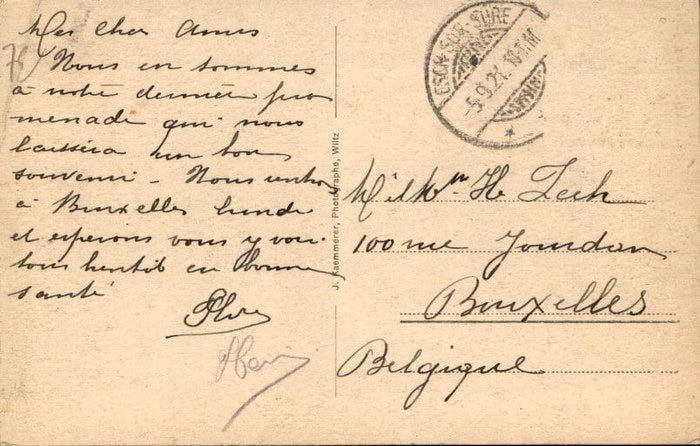 Mes cher Amis
Nous en sommes
à notre dernière pro
menade qui nous
laissera un bon
souvenir - Nous
à Bruxelles lundi
et esperons vous y voir
tous bientôt en bonne
santé
J. Kaemmerer, Photographe, Wiltz
ESCH-SUR-SURE
-5.9.21.
H.
100 rue Jourdan
Bruxelles
Belgique